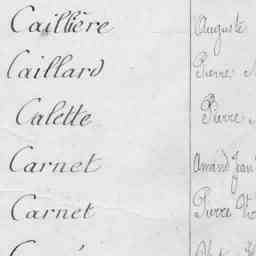 Caillière Auguste
Caillard Pierre
Calette Pierre
Carnet Amand Jean
Carnet Pierre